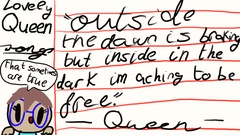 Lovely
Queen
songs
That sometimes
are true
"outside
the dawn is braking
but inside in the
dark im aching to be
free."
— Queen —